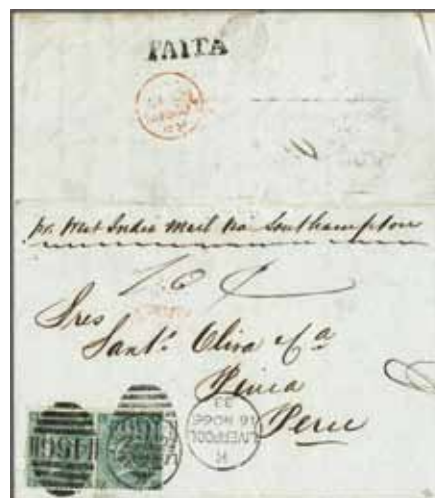 PAITA
pr. West India Mail via Southampton
Sres
Santº Oliva & Cª
Piura
Peru
LIVERPOOL
16 NO 66
33